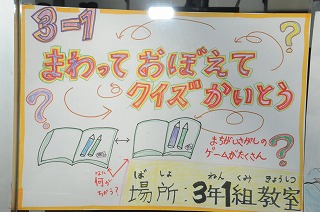 3-1
まわって おぼえて
クイズ かいとう
?
?
?
まちがいさがしの
ゲームがたくさん
なに
何が
ちがう?
ばしょ ねん くみ きょうしつ
場所:3年1組教室